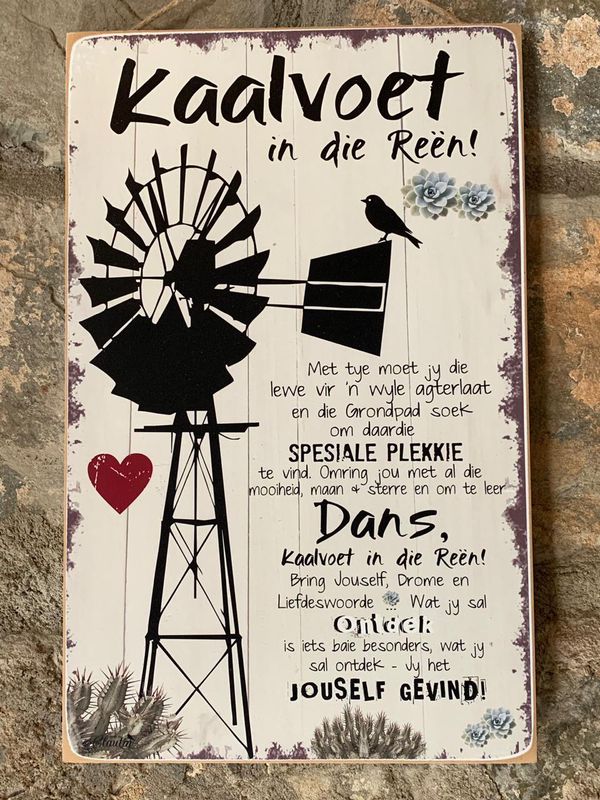 Kaalvoet
in die Reën!
Met tye moet jy die
lewe vir 'n wyle agterlaat
en die Grondpad soek
om daardie
SPESIALE PLEKKIE
te vind. Omring jou met al die
mooiheid, maan & sterre en om te leer
Dans,
Kaalvoet in die Reën!
Bring Jouself, Drome en
Liefdeswoorde Wat jy sal
Ontdek
is iets baie besonders, wat jy
sal ontdek - Jy het
JOUSELF GEVIND!